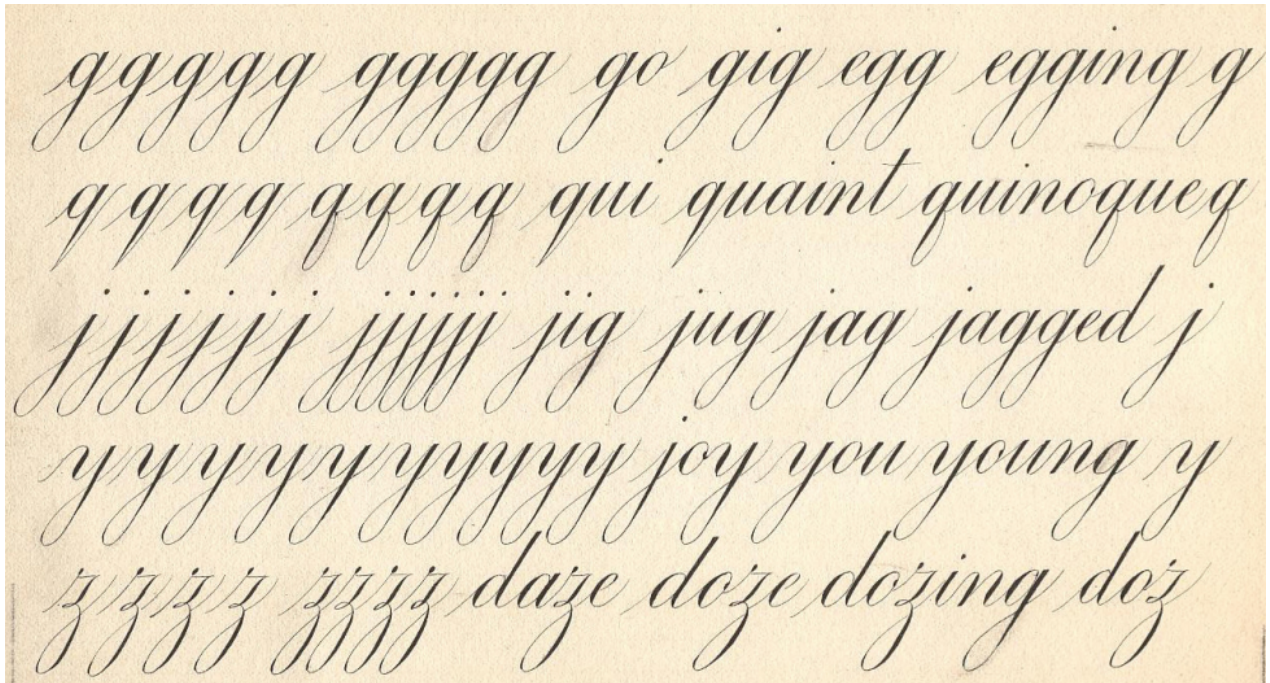 g g g g g ggggg go gig egg egging g
q q q q q q q q qui quaint quincque q
j j j j j j jjjjjj jig jug jag jagged j
y y y y y yyyyy joy you young y
z z z z zzzz daze doze dozing doz